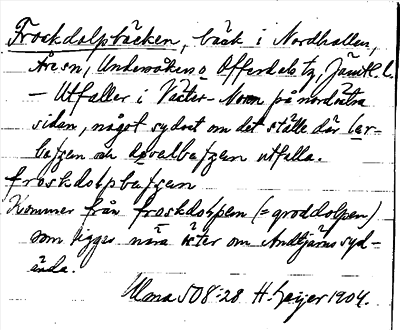 Froskdolpbäcken, bäck i Nordhallen,
Åre sn, Undersåkers o Offerdals tg, Jämtl. l.
– Utfaller i Väster-Noren på nordöstra
sidan, något sydost om det ställe där ler-
bafzen och
froskdolpbafzen
Kommer från froskdolpen (= groddolpen)
som ligger nära öster om Andtjärns syd-
ände.
Ulma 508:28 H. Geijer 1904.